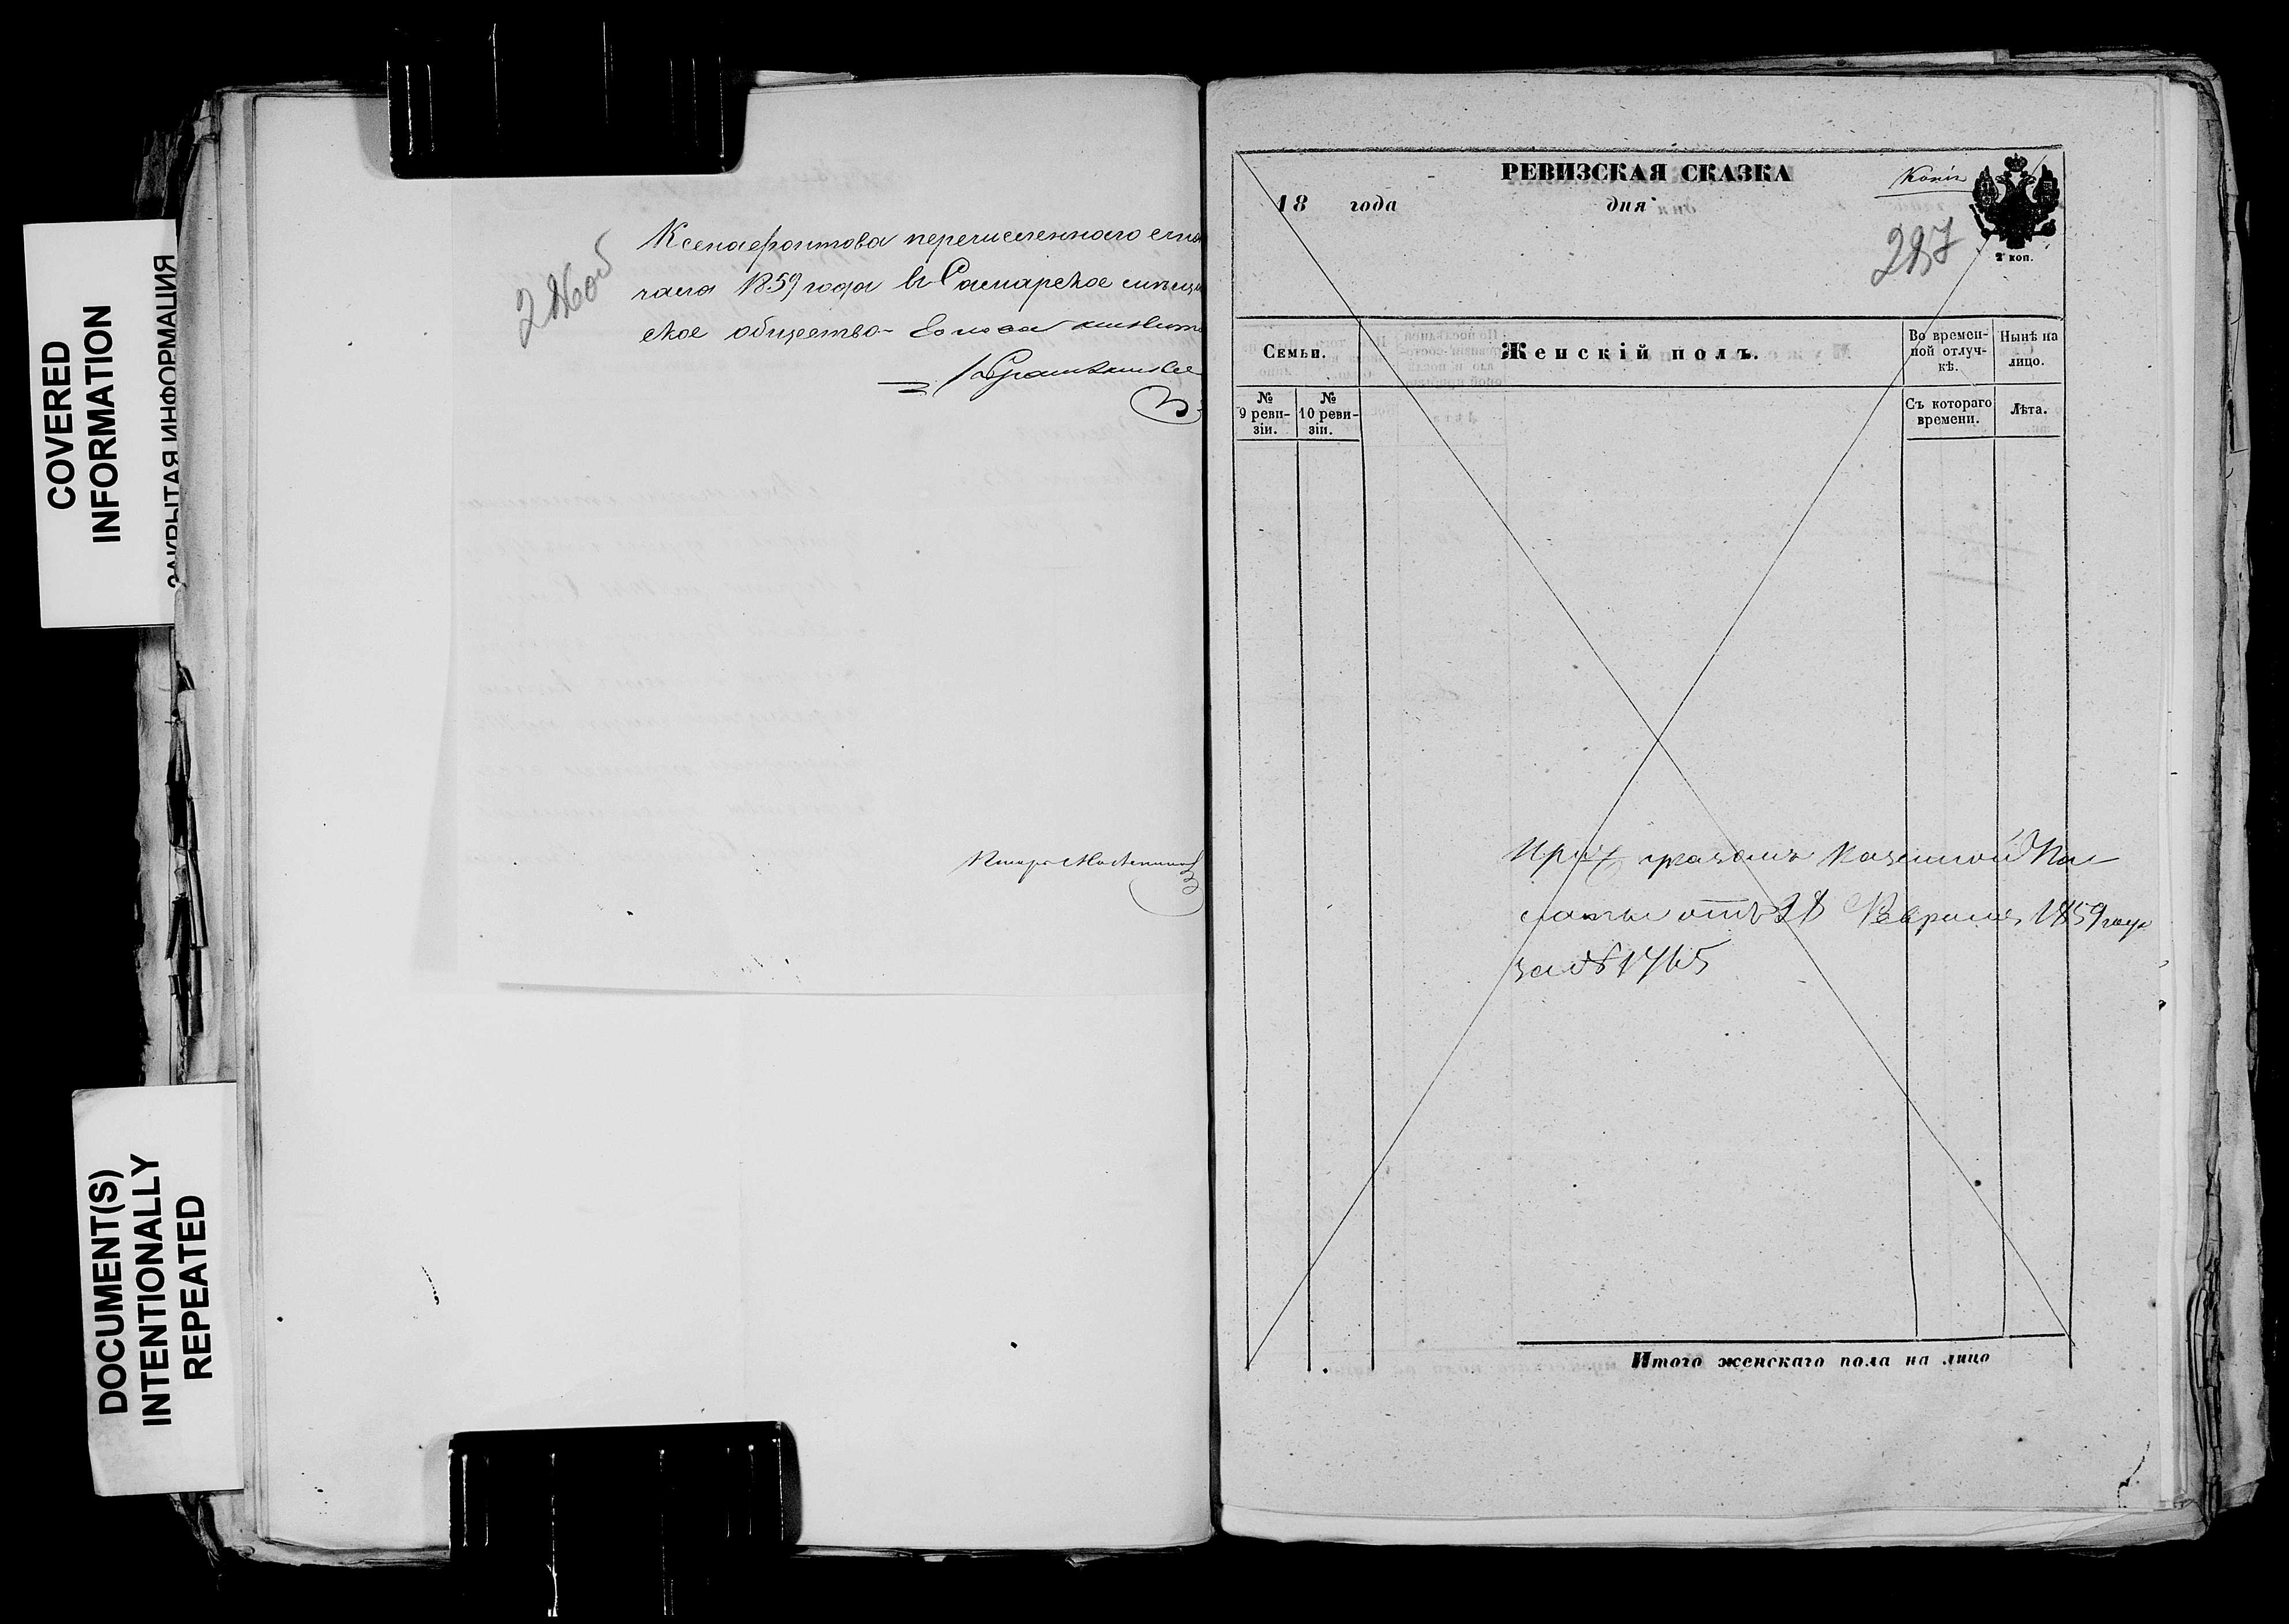 COVERED
INFORMATION
ЗАКРЫТАЯ ИНФОРМАЦИЯ
DOCUMENT(S)
INTENTIONALLY
REPEATED
Ксенофонтова перечисленнаго съ на
чала 1859 года въ Самарское мѣщан
ское общество
РЕВИЗСКАЯ СКАЗКА
Копія
18 года дня
287
2 коп.
Семьи.
Женскій полъ.
Во времен-
ной отлуч-
кѣ.
Нынѣ на
лицо.
№
9 реви-
зіи.
№
10 реви-
зіи.
Съ котораго
времени.
Лѣта.
При указомъ Казенной Па
латы отъ 28 Февраля 1859 года
за № 1765
Итого женскаго пола на лицо